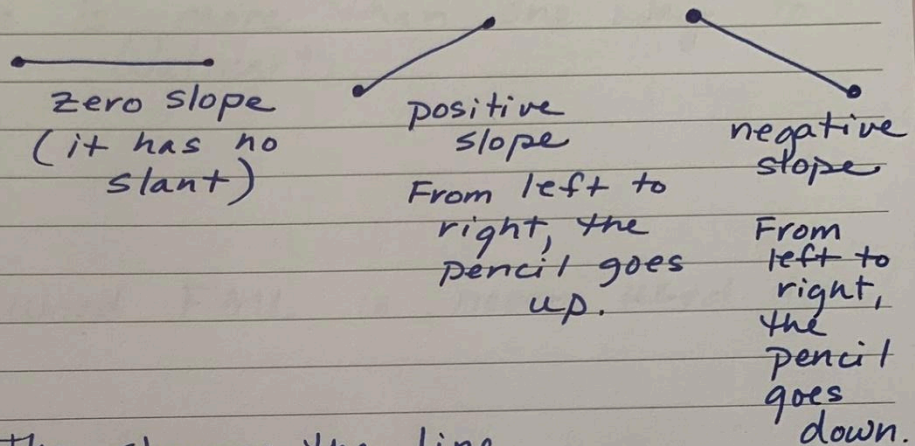 zero slope
(it has no
slant)
positive
slope
From left to
right, the
pencil goes
up.
negative
slope
From
left to
right,
the
pencil
goes
down.
the line